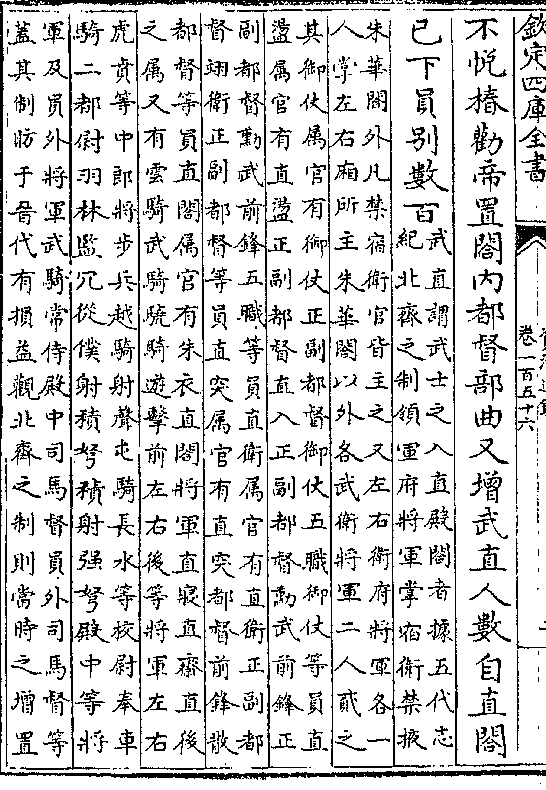 欽定四庫全書
卷一百五十六
不悅椿勸帝置閤内都督部曲又增武直人數自直閤
已下員别數百
武直謂武士之入直殿閤者據五代志
紀北齊之制領軍府將軍掌宿衛禁掖
朱華閤外凡禁宿衛官皆主之又左右衛府將軍各一
人掌左右廂所主朱華閤以外各武衛將軍二人貳之
其御仗屬官有御仗正副都督御仗五職御仗等員直
盪屬官有直盪正副都督直入正副都督勳武前鋒正
副都督勳武前鋒五職等員直衛屬官有直衛正副都
督翊衛正副都督等員直突屬官有直突都督前鋒散
都督等員直閤屬官有朱衣直閤將軍直寢直齋直後
之屬又有雲騎武騎驍騎遊擊前左右後等將軍左右
虎賁等中郎將步兵越騎射聲屯騎長水等校尉奉車
騎二都尉羽林監冗從僕射積弩積射强弩殿中等將
軍及員外將軍武騎常侍殿中司馬督員外司馬督等
蓋其制昉于晉代有損益觀北齊之制則當時之增置